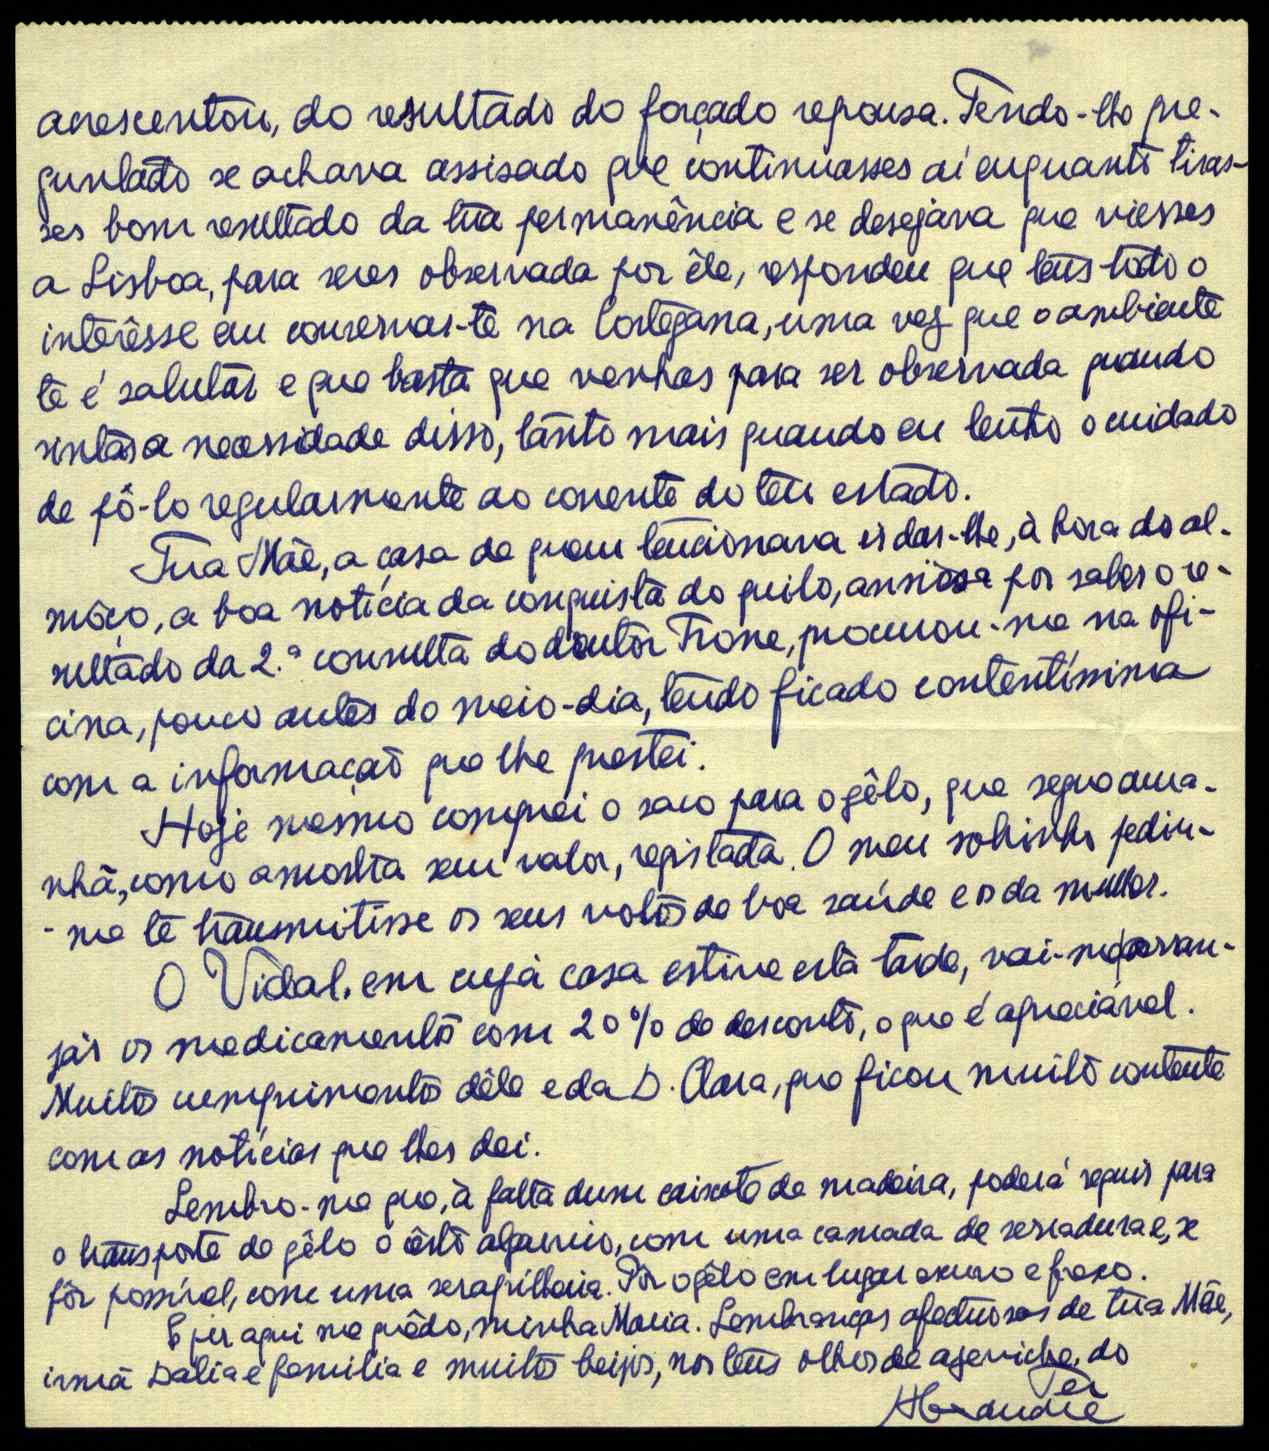 acrescentou, do resultado do forçado repouso. Tendo-lho pre-
guntado se achava assisado que continuasses aí enquanto tiras-
ses bom resultado da tua permanência e se desejava que viesses
a Lisboa, para seres observada por êle, respondeu que tens todo o
interêsse em conservar-te na Cortegana, uma vez que o ambiente
te é salutar e que basta que venhas para ser observada quando
sintas a necessidade disso, tanto mais quando eu tenho o cuidado
de pô-lo regularmente ao corrente do teu estado.
Tua Mãe, a casa de quem tencionava ir dar-lhe, à hora do al-
môço, a boa notícia da conquista do quilo, ansiosa por saber o re-
sultado da 2.ª consulta do doutor Frone, procurou-me na ofi-
cina, pouco antes do meio-dia, tendo ficado contentíssima
com a informação que lhe prestei.
Hoje mesmo comprei o saco para o gêlo, que segue ama-
nhã, como amostra sem valor, registada. O meu sobrinho pediu-
-me te transmitisse os seus votos de boa saúde e os da mulher.
O Vidal, em cuja casa estive esta tarde, vai-me arran-
jar os medicamentos com 20% de desconto, o que é apreciável.
Muitos cumprimentos dêle e da D. Clara, que ficou muito contente
com as notícias que lhes dei.
Lembro-me que, à falta dum caixote de madeira, poderá seguir para
o transporte do gêlo o cêsto algarvio, com uma camada de serradura e, se
fôr possível, com uma serapilheira. Pôr o gêlo em lugar escuro e fresco.
E por aqui me quêdo, minha Maria. Lembranças afectuosas de tua Mãe,
irmã Dália e família e muitos beijos, nos teus olhos de azeviche, do
Teu
Alexandre